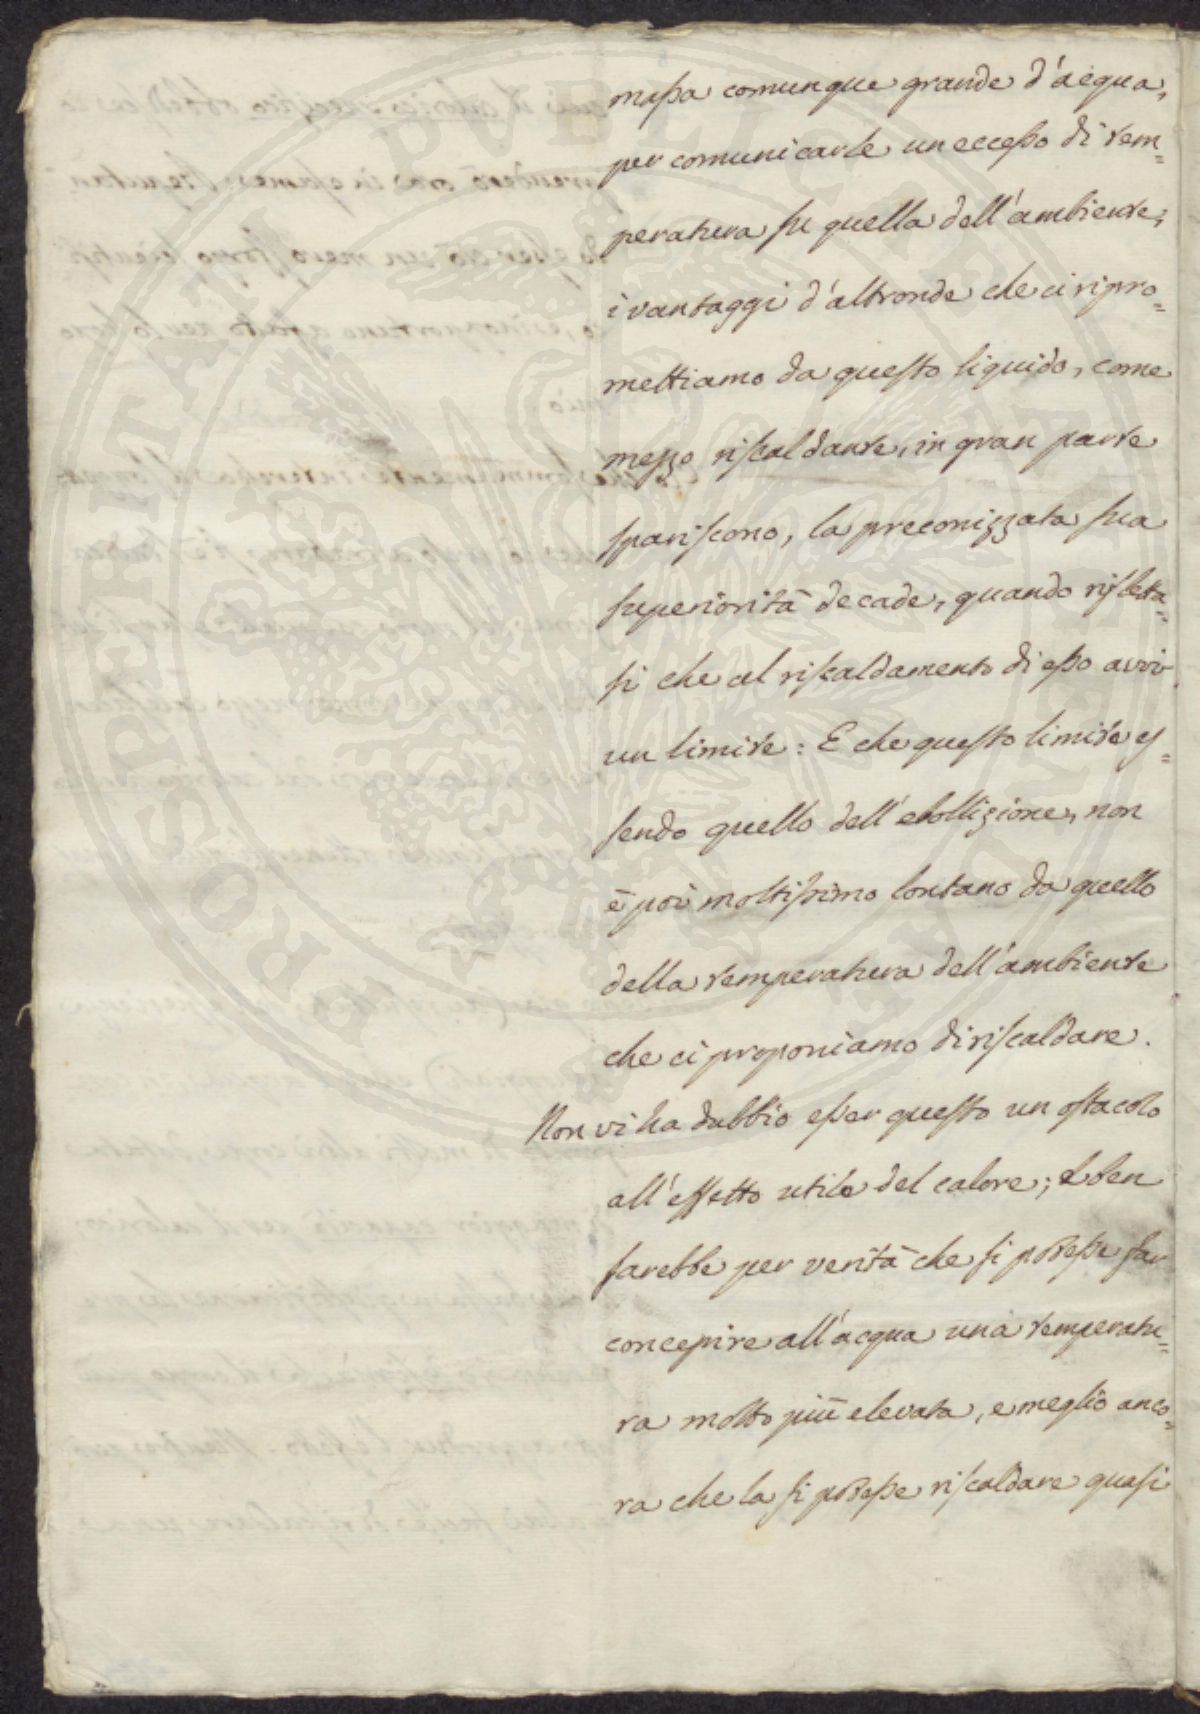 massa comunque grande d'acqua,
per comunicarle un eccesso di tem=
peratura su quella dell'ambiente;
i vantaggi d'altronde che ci ripro=
mettiamo da questo liquido, come
mezzo riscaldante, in gran parte
spariscono, la preconizzata sua
superiorità decade, quando rifletta=
si che al riscaldamento di esso avvi
un limite: E che questo limite es=
sendo quello dell'ebollizione, non
è poi moltissimo lontano da quello
della temperatura dell'ambiente
che ci proponiamo di riscaldare.
Non vi ha dubbio esser questo un ostacolo
all'effetto utile del calore; e ben
sarebbe per verità che si potesse far
concepire all'acqua una temperatu=
ra molto più elevata, e meglio anco=
ra che la si potesse riscaldare quasi
PROSPERITATI PVBLICAE AVGENDAE